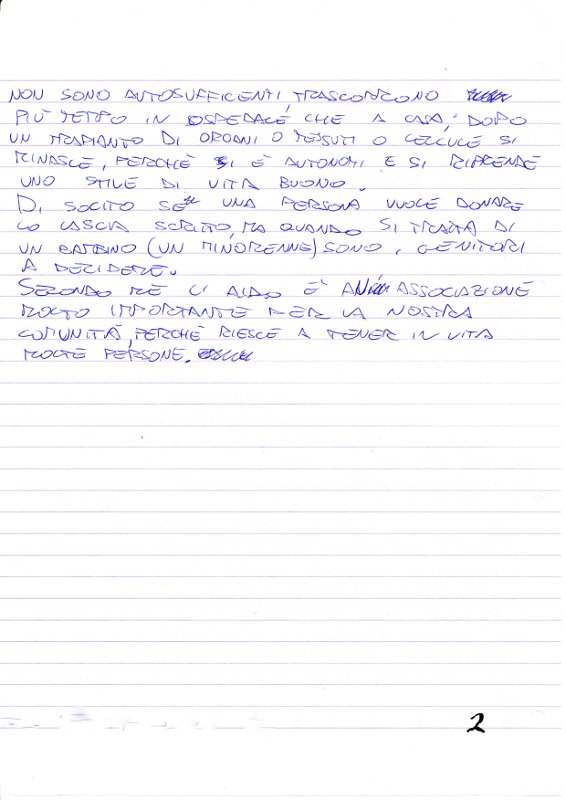 NON SONO AUTOSUFFICENTI, TRASCORRONO
PIÙ TEMPO IN OSPEDALE CHE A CASA; DOPO
UN TRAPIANTO DI ORGANI O TESSUTI O CELLULE SI
RINASCE, PERCHÈ SI È AUTONOMI E SI RIPRENDE
UNO STILE DI VITA BUONO.
DI SOLITO SE UNA PERSONA VUOLE DONARE
LO LASCIA SCRITTO, MA QUANDO SI TRATTA DI
UN BAMBINO (UN MINORENNE) SONO I GENITORI
A DECIDERE.
SECONDO ME L'AIDO È ASSOCIAZIONE
MOLTO IMPORTANTE PER LA NOSTRA
COMUNITÀ, PERCHÈ RIESCE A TENER IN VITA
MOLTE PERSONE.
2